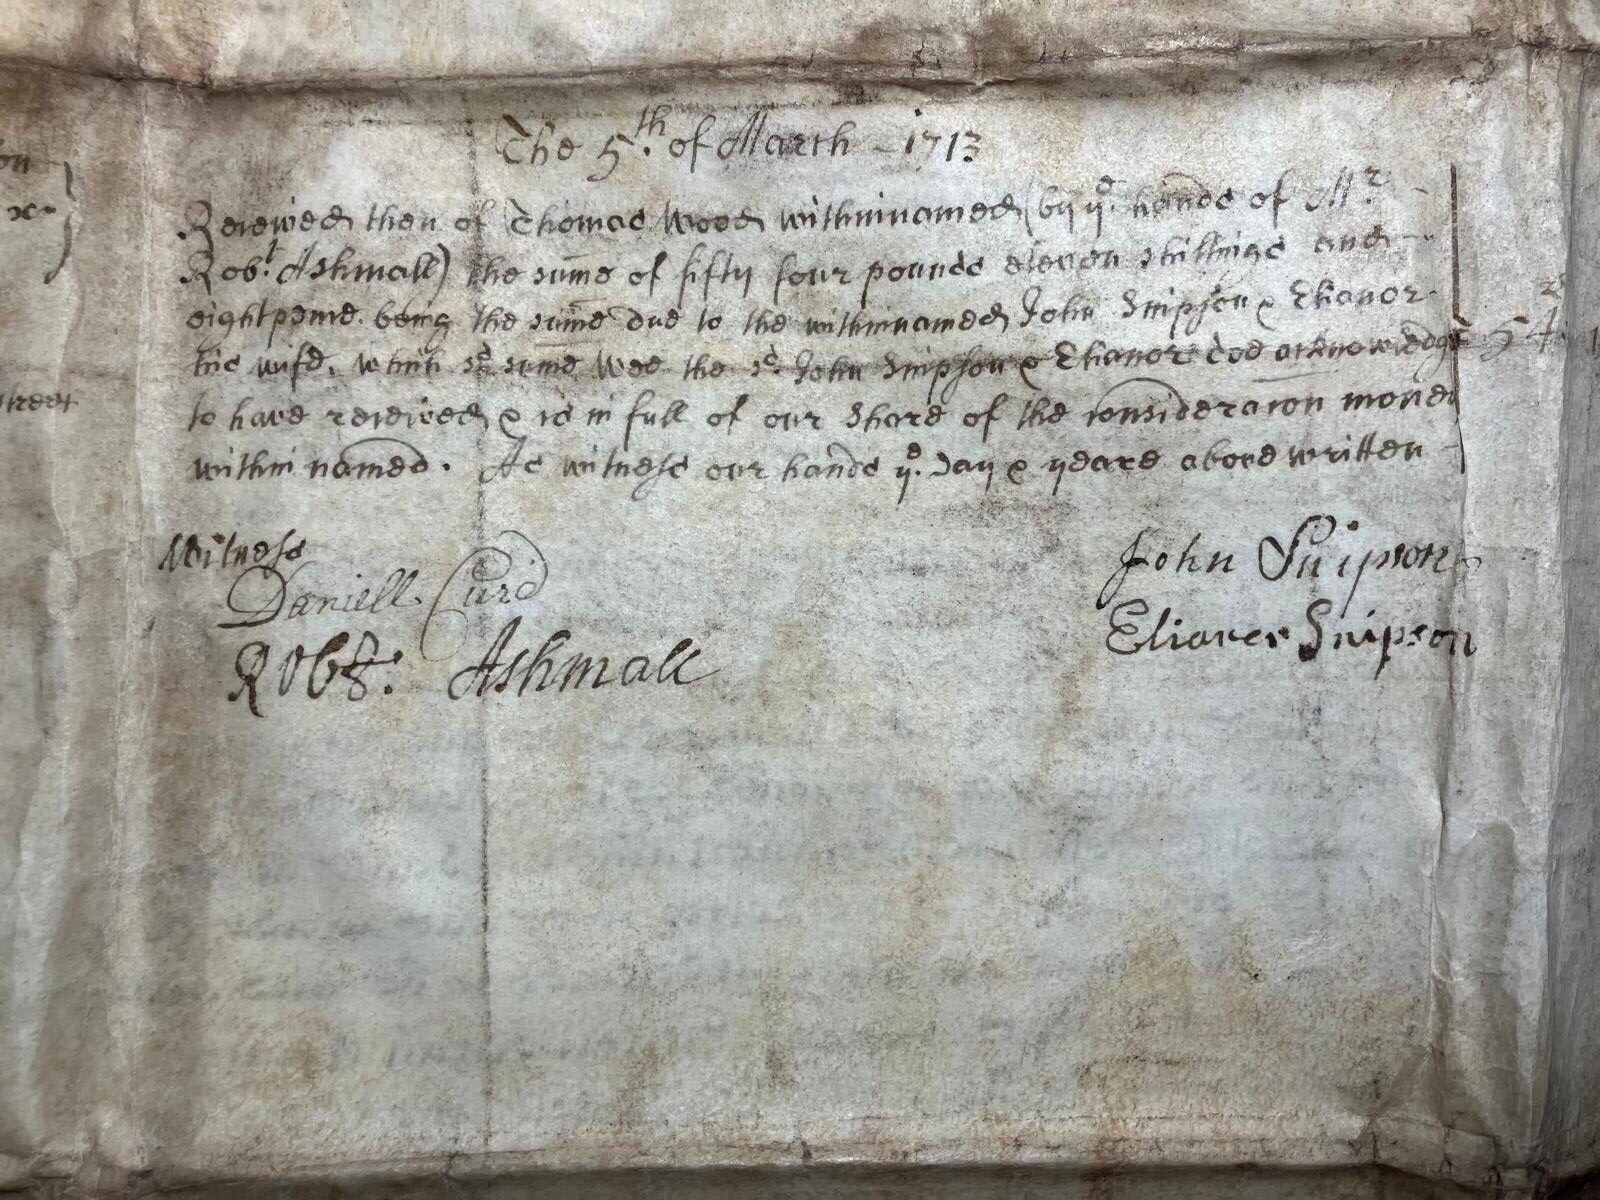 The 5th. of March - 1713
Received then of Thomas Wood withinnamed (by ye. hands of Mr.
Robt. Ashmall) the sume of fifty four pounds eleven shillings and
eightpence being the sume due to the withinnamed John Snipson & Elianor
his wife. which sd. sume Wee the sd. John Snipson & Elianor doe acknowledge
to have received & is in full of our Share of the consideracion money
within named. As witness our hands ye. day & yeare above written
Witness
Daniell Curd
Robt. Ashmall
John Snipson
Elianer Snipson
54
on
street